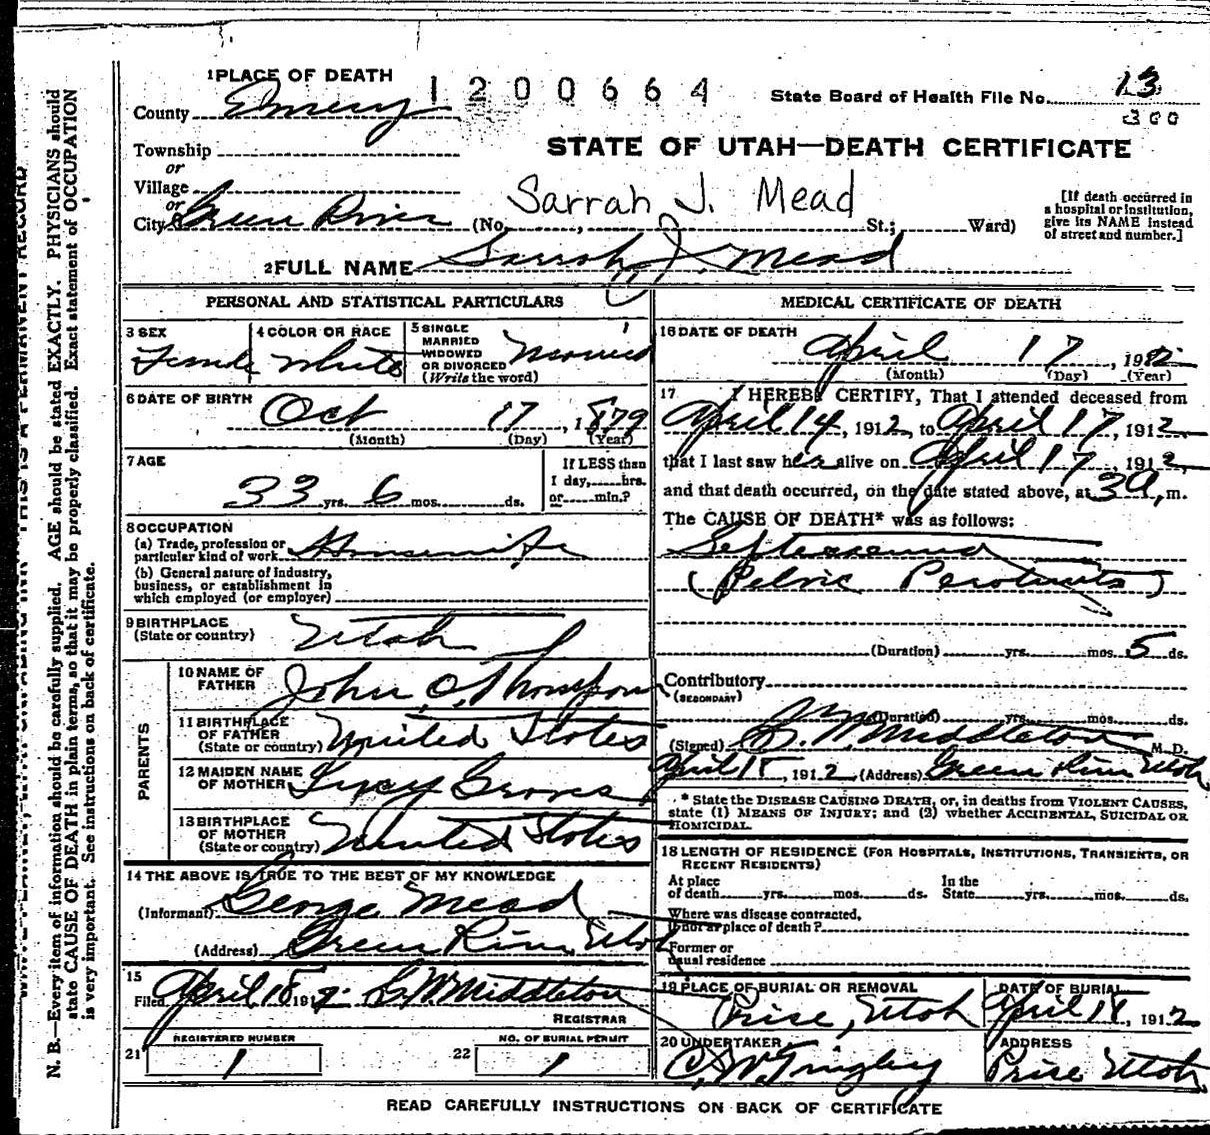 1 PLACE OF DEATH
1 2 0 0 6 6 4
State Board of Health File No. 13
300
County Emery
STATE OF UTAH—DEATH CERTIFICATE
Township
or
Village
or
City Green River (No. , St.; Ward)
Sarrah J. Mead
[If death occurred in a hospital or institution, give its NAME instead of street and number.]
2 FULL NAME Sarrah J. Mead
PERSONAL AND STATISTICAL PARTICULARS
3 SEX Female
4 COLOR OR RACE White
5 SINGLE MARRIED WIDOWED OR DIVORCED (Write the word) Married
6 DATE OF BIRTH Oct 17, 1879
(Month) (Day) (Year)
7 AGE 33 yrs. 6 mos. ds.
If LESS than 1 day, hrs. or min.?
8 OCCUPATION
(a) Trade, profession or particular kind of work Housewife
(b) General nature of industry, business, or establishment in which employed (or employer)
9 BIRTHPLACE (State or country) Utah
PARENTS
10 NAME OF FATHER John C. Thompson
11 BIRTHPLACE OF FATHER (State or country) United States
12 MAIDEN NAME OF MOTHER Lucy Groves
13 BIRTHPLACE OF MOTHER (State or country) United States
14 THE ABOVE IS TRUE TO THE BEST OF MY KNOWLEDGE
(Informant) George Mead
(Address) Green River, Utah
15 Filed April 18 1912 Middleton
REGISTRAR
21 REGISTERED NUMBER 1
22 NO. OF BURIAL PERMIT 1
MEDICAL CERTIFICATE OF DEATH
16 DATE OF DEATH April 17, 1912
(Month) (Day) (Year)
17 I HEREBY CERTIFY, That I attended deceased from
April 14, 1912, to April 17, 1912,
that I last saw her alive on April 17, 1912,
and that death occurred, on the date stated above, at 3 a, m.
The CAUSE OF DEATH* was as follows:
(Pelvic
(Duration) yrs. mos. 5 ds.
Contributory
(SECONDARY)
(Duration) yrs. mos. ds.
(Signed) Middleton M. D.
April 18, 1912 (Address) Green River Utah
* State the DISEASE CAUSING DEATH, or, in deaths from VIOLENT CAUSES, state (1) MEANS OF INJURY; and (2) whether ACCIDENTAL, SUICIDAL OR HOMICIDAL.
18 LENGTH OF RESIDENCE (FOR HOSPITALS, INSTITUTIONS, TRANSIENTS, OR RECENT RESIDENTS)
At place of death yrs. mos. ds. In the State yrs. mos. ds.
Where was disease contracted, if not at place of death?
Former or usual residence
19 PLACE OF BURIAL OR REMOVAL Price, Utah
DATE OF BURIAL April 18, 1912
20 UNDERTAKER C. W. Tingley
ADDRESS Price Utah
READ CAREFULLY INSTRUCTIONS ON BACK OF CERTIFICATE
N. B.—Every item of information should be carefully supplied. AGE should be stated EXACTLY. PHYSICIANS should
state CAUSE OF DEATH in plain terms, so that it may be properly classified. Exact statement of OCCUPATION
is very important. See instructions on back of certificate.